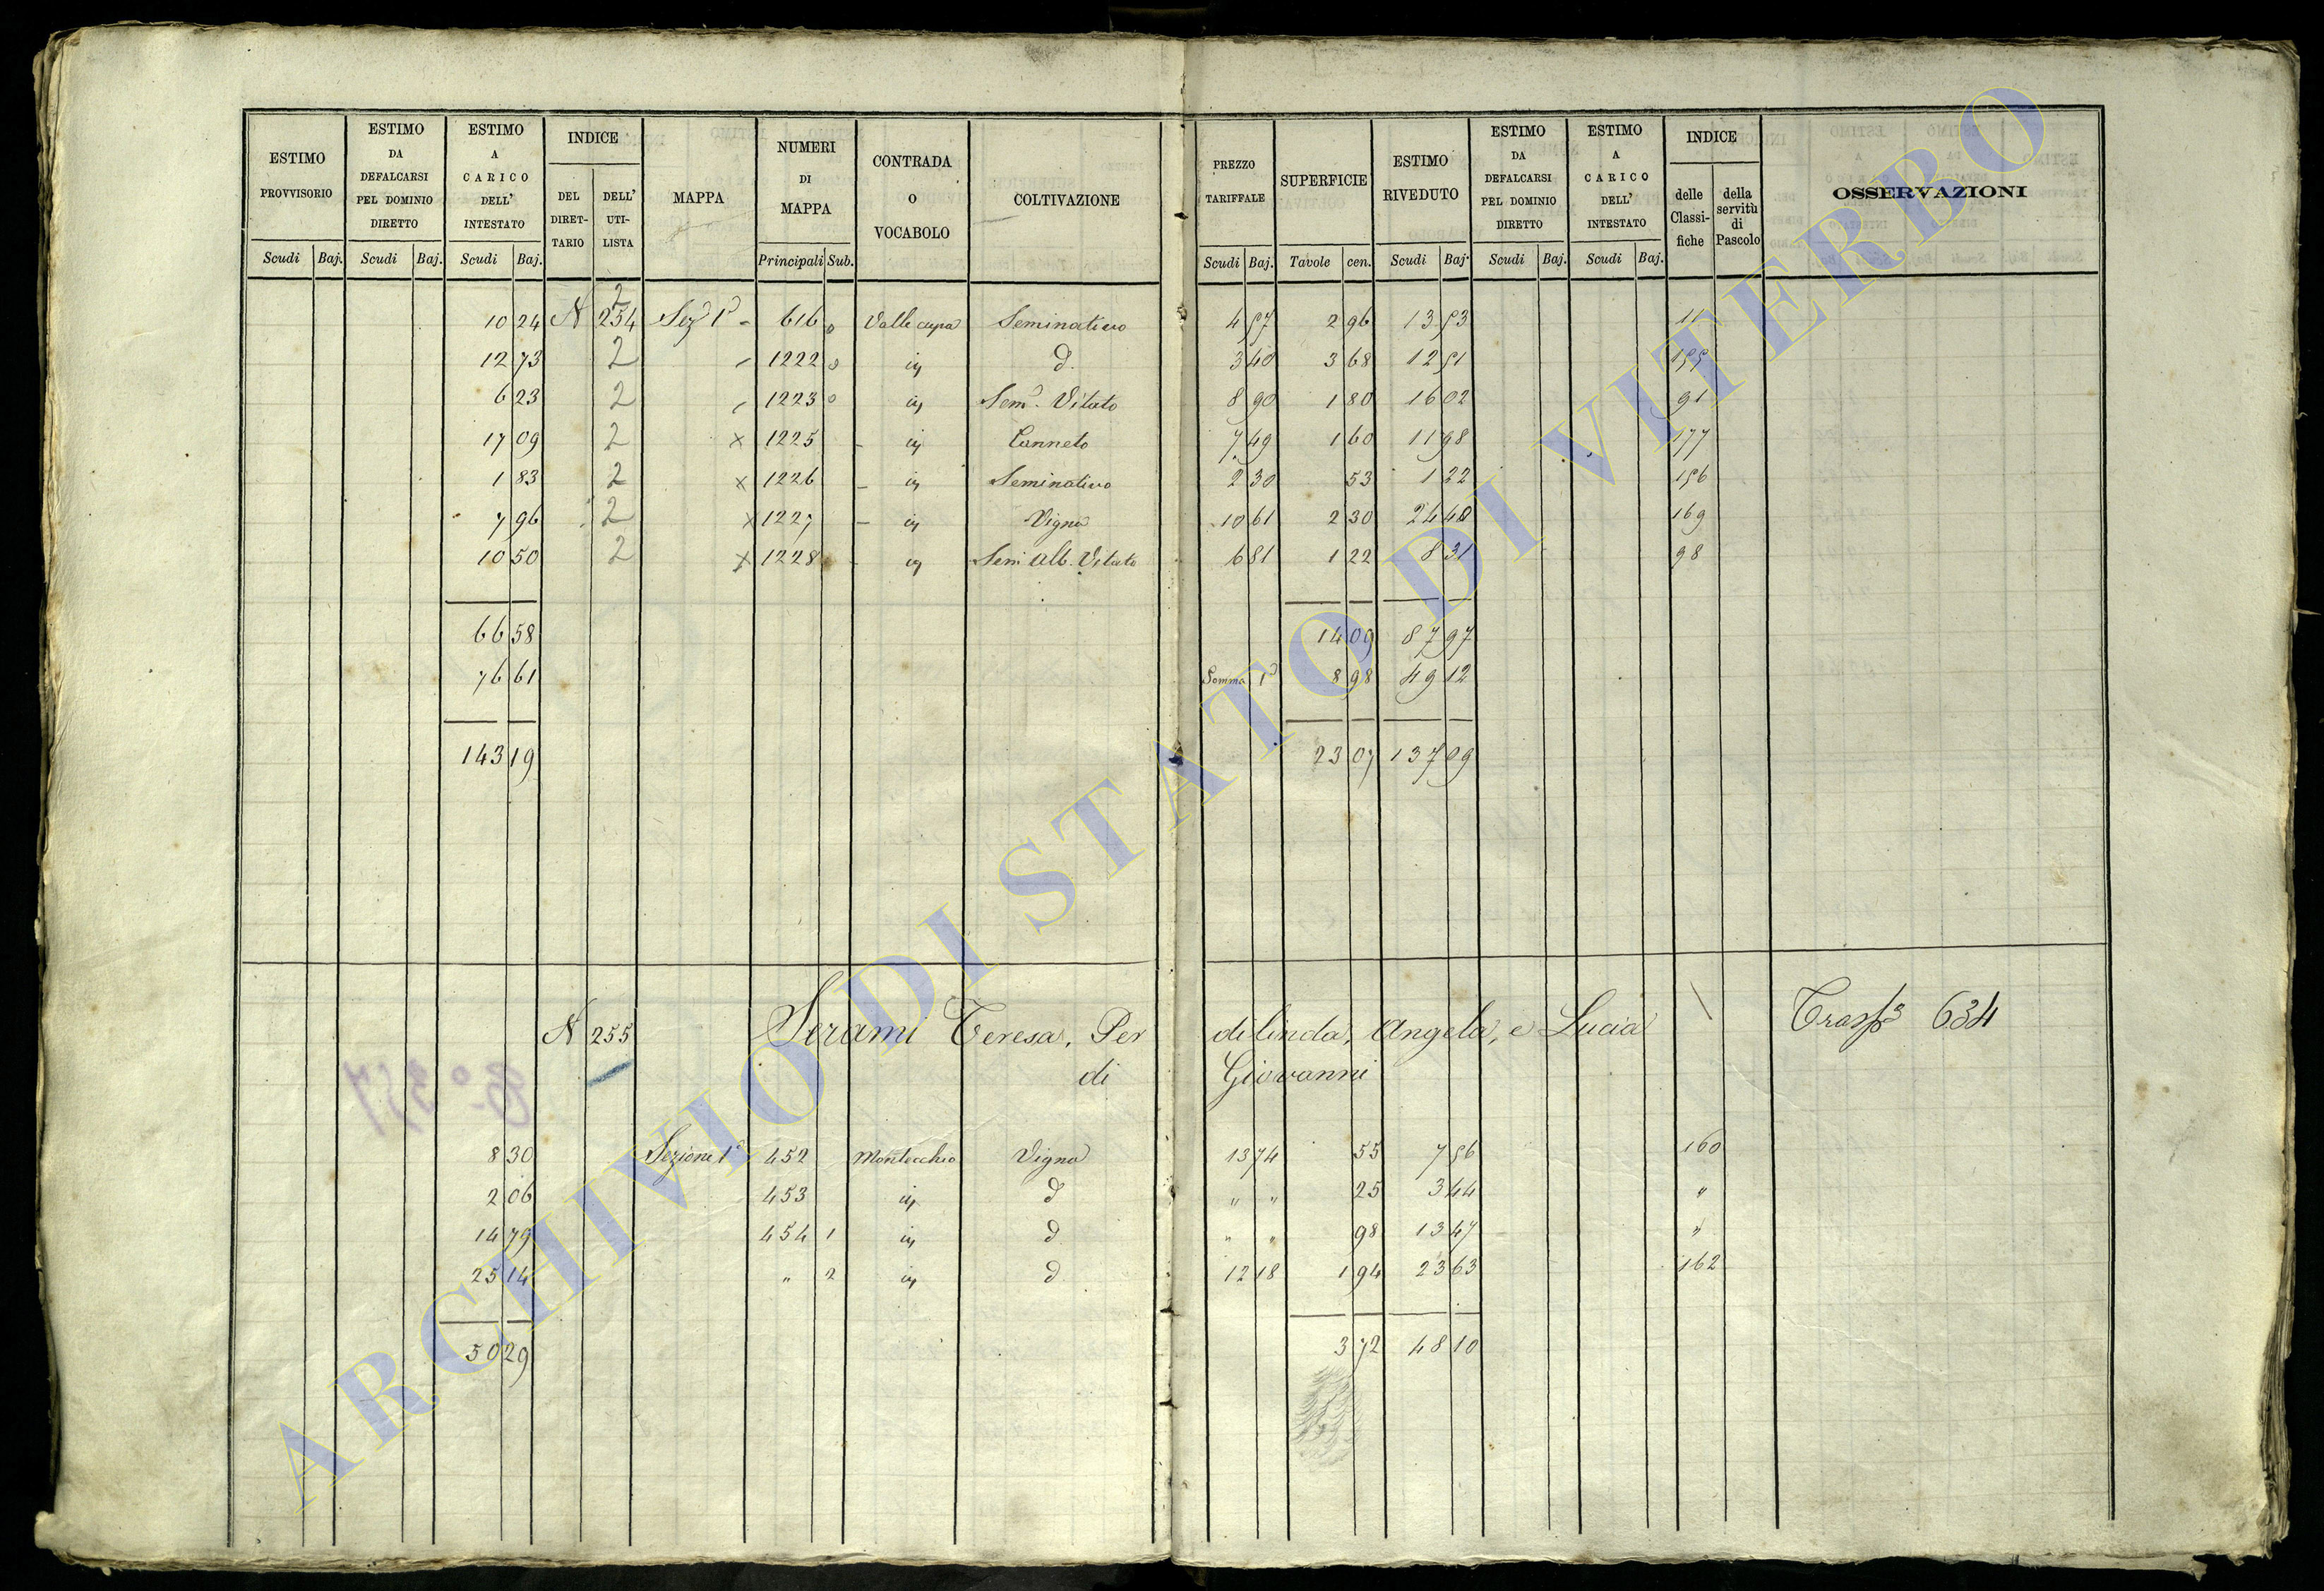 ESTIMO PROVVISORIO Scudi Baj.
ESTIMO DA DEFALCARSI PEL DOMINIO DIRETTO Scudi Baj.
ESTIMO A CARICO DELL' INTESTATO Scudi Baj.
INDICE
DEL DIRET-TARIO
DELL' UTI-LISTA
MAPPA
NUMERI DI MAPPA Principali Sub.
CONTRADA O VOCABOLO
COLTIVAZIONE
PREZZO TARIFFALE Scudi Baj.
SUPERFICIE Tavole cen.
ESTIMO RIVEDUTO Scudi Baj.
ESTIMO DA DEFALCARSI PEL DOMINIO DIRETTO Scudi Baj.
ESTIMO A CARICO DELL' INTESTATO Scudi Baj.
INDICE
delle Classi-fiche
della servitù di Pascolo
OSSERVAZIONI
10 24 N 254 2 Sez 1a 616 0 Valle cupa Seminativo 4 57 2 96 13 53 11
12 73 2 1222 0 in d. 3 40 3 68 12 51 155
6 23 2 1223 0 in Semo. Vitato 8 90 1 80 16 02 91
17 09 2 x 1225 - in Canneto 7 49 1 60 11 98 177
1 83 2 x 1226 - in Seminativo 2 30 53 1 22 156
7 96 2 x 1227 - in Vigna 10 61 2 30 24 40 169
10 50 2 x 1228 - in Sem Alb. Vitato 6 81 1 22 8 31 98
66 58 14 09 87 97
76 61 Somma 1a 8 98 49 12
143 19 23 07 137 09
N 255 Serami Teresa, Perdilinda, Angela, e Lucia Trasp 634
di Giovanni
8 30 Sezione 1a 452 Montecchio Vigna 13 74 55 7 56 160
2 06 453 in d " " 25 3 44 "
14 79 454 1 in d " " 98 13 47 "
25 14 " 2 in d 12 18 1 94 23 63 162
50 29 3 72 48 10
ARCHIVIO DI STATO DI VITERBO